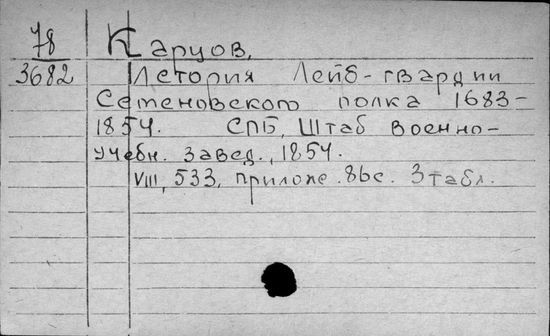 78
3682
Карцов.
История Лейб-гвардии
Семеновского полка 1683-
1854. СПБ, Штаб военно-
учебн. завед., 1854.
VIII, 533, прилож. 86с. 3 табл.